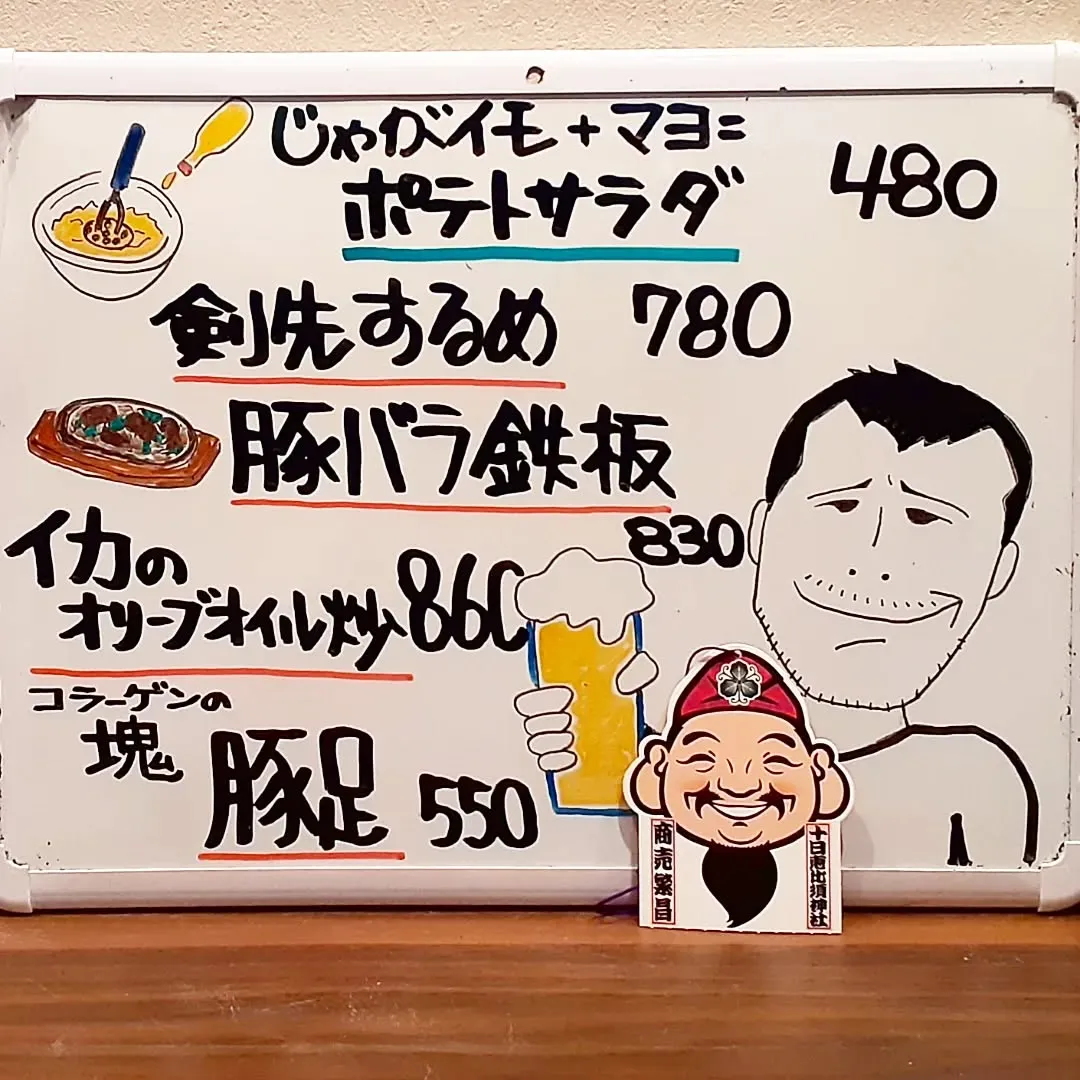 じゃがイモ+マヨ=
ポテトサラダ 480
剣先するめ 780
豚バラ鉄板
830
イカの
オリーブオイル炒 860
コラーゲンの
塊
豚足 550
商売繁昌
十日恵比須神社